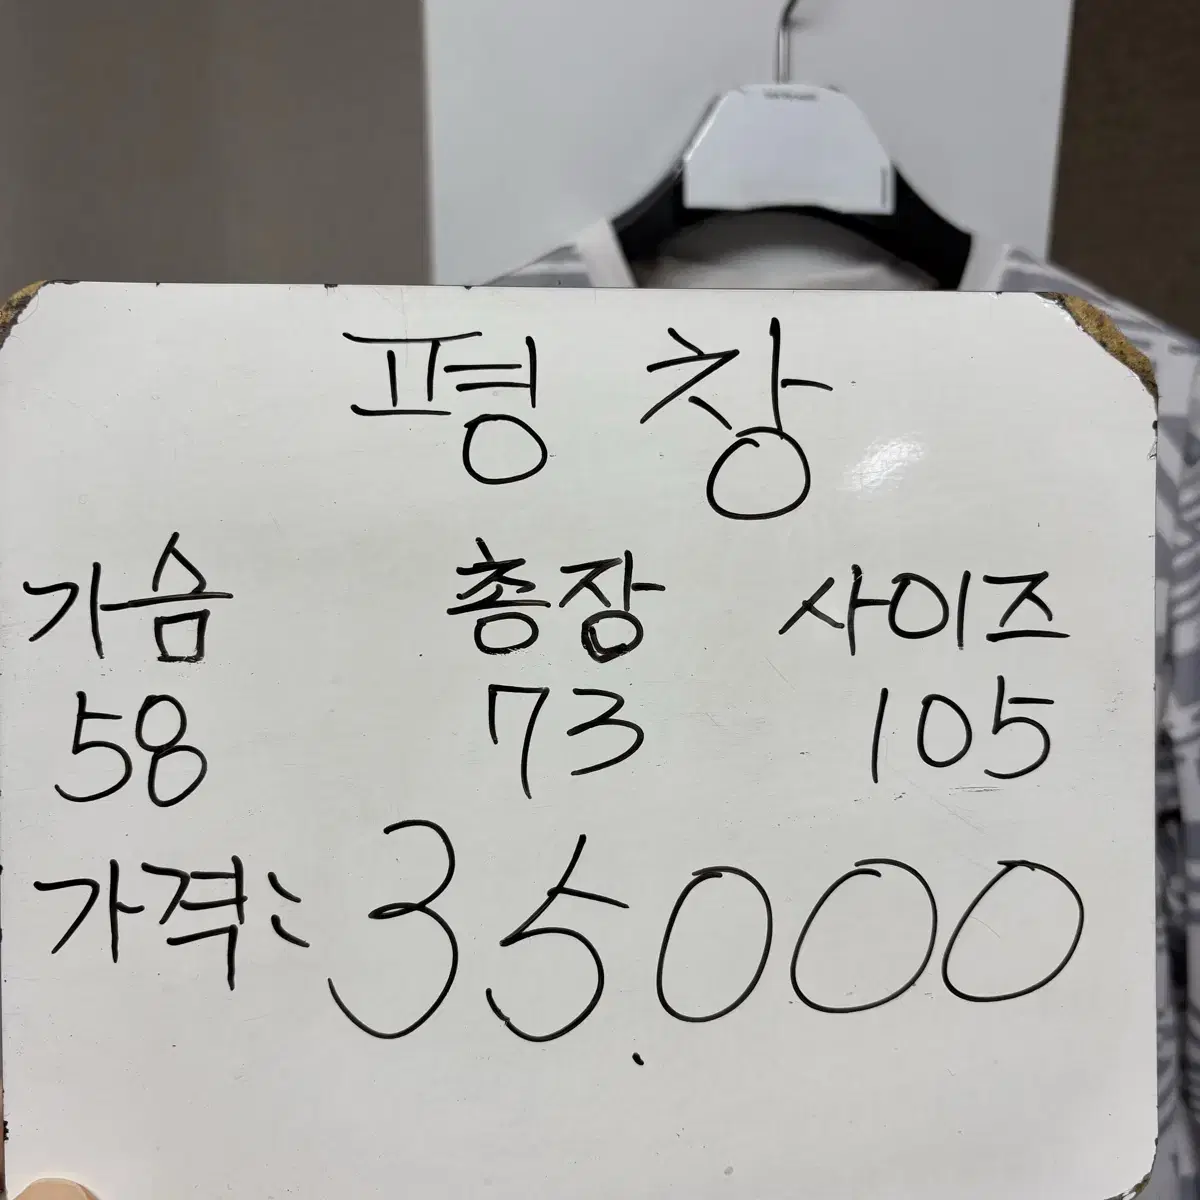 평창
가슴 총장 사이즈
58 73 105
가격: 35.000